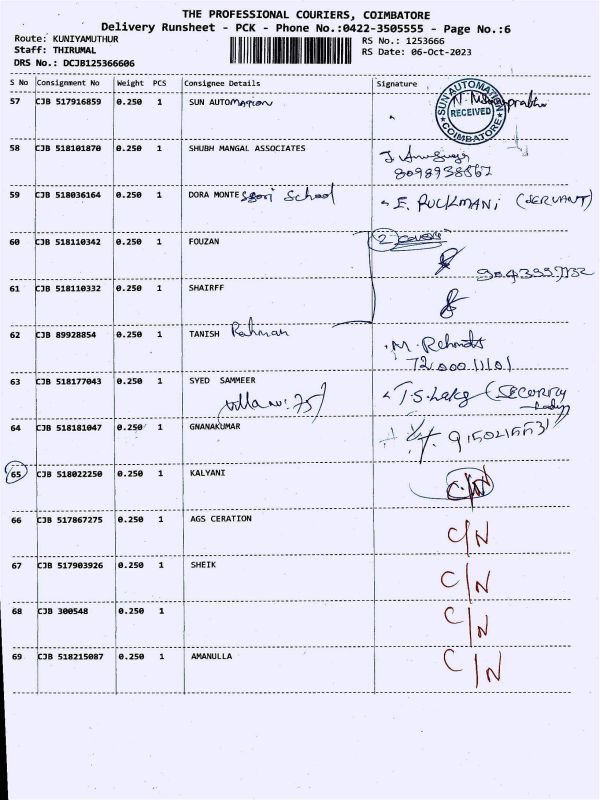 THE PROFESSIONAL COURIERS, COIMBATORE
Delivery Runsheet - PCK - Phone No.:0422-3505555 - Page No.:6
Route: KUNIYAMUTHUR
Staff: THIRUMAL
DRS No.: DCJB125366606
RS No.: 1253666
RS Date: 06-Oct-2023
S No Consignment No Weight PCS Consignee Details Signature
57 CJB 517916859 0.250 1 SUN AUTOMATION
SUN AUTOMATION RECEIVED COIMBATORE
58 CJB 518101870 0.250 1 SHUBH MANGAL ASSOCIATES
8098938567
59 CJB 518036164 0.250 1 DORA MONTESSORI School E. RUCKMANI (SERVANT)
60 CJB 518110342 0.250 1 FOUZAN 2 covers
61 CJB 518110332 0.250 1 SHAIRFF
62 CJB 89928854 0.250 1 TANISH Rahman M. Rehmat
72000 11101
63 CJB 518177043 0.250 1 SYED SAMMEER (SECURITY
Lady)
Villa no: 75
64 CJB 518181047 0.250 1 GNANAKUMAR
65 CJB 518022250 0.250 1 KALYANI C/N
66 CJB 517867275 0.250 1 AGS CERATION C/N
67 CJB 517903926 0.250 1 SHEIK C/N
68 CJB 300548 0.250 1 C/N
69 CJB 518215087 0.250 1 AMANULLA C/N